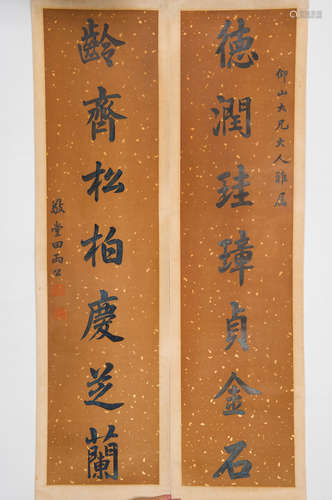 仰山大兄大人雅属
德潤珪璋貞金石
齡齊松柏慶芝蘭
敬堂田雨公